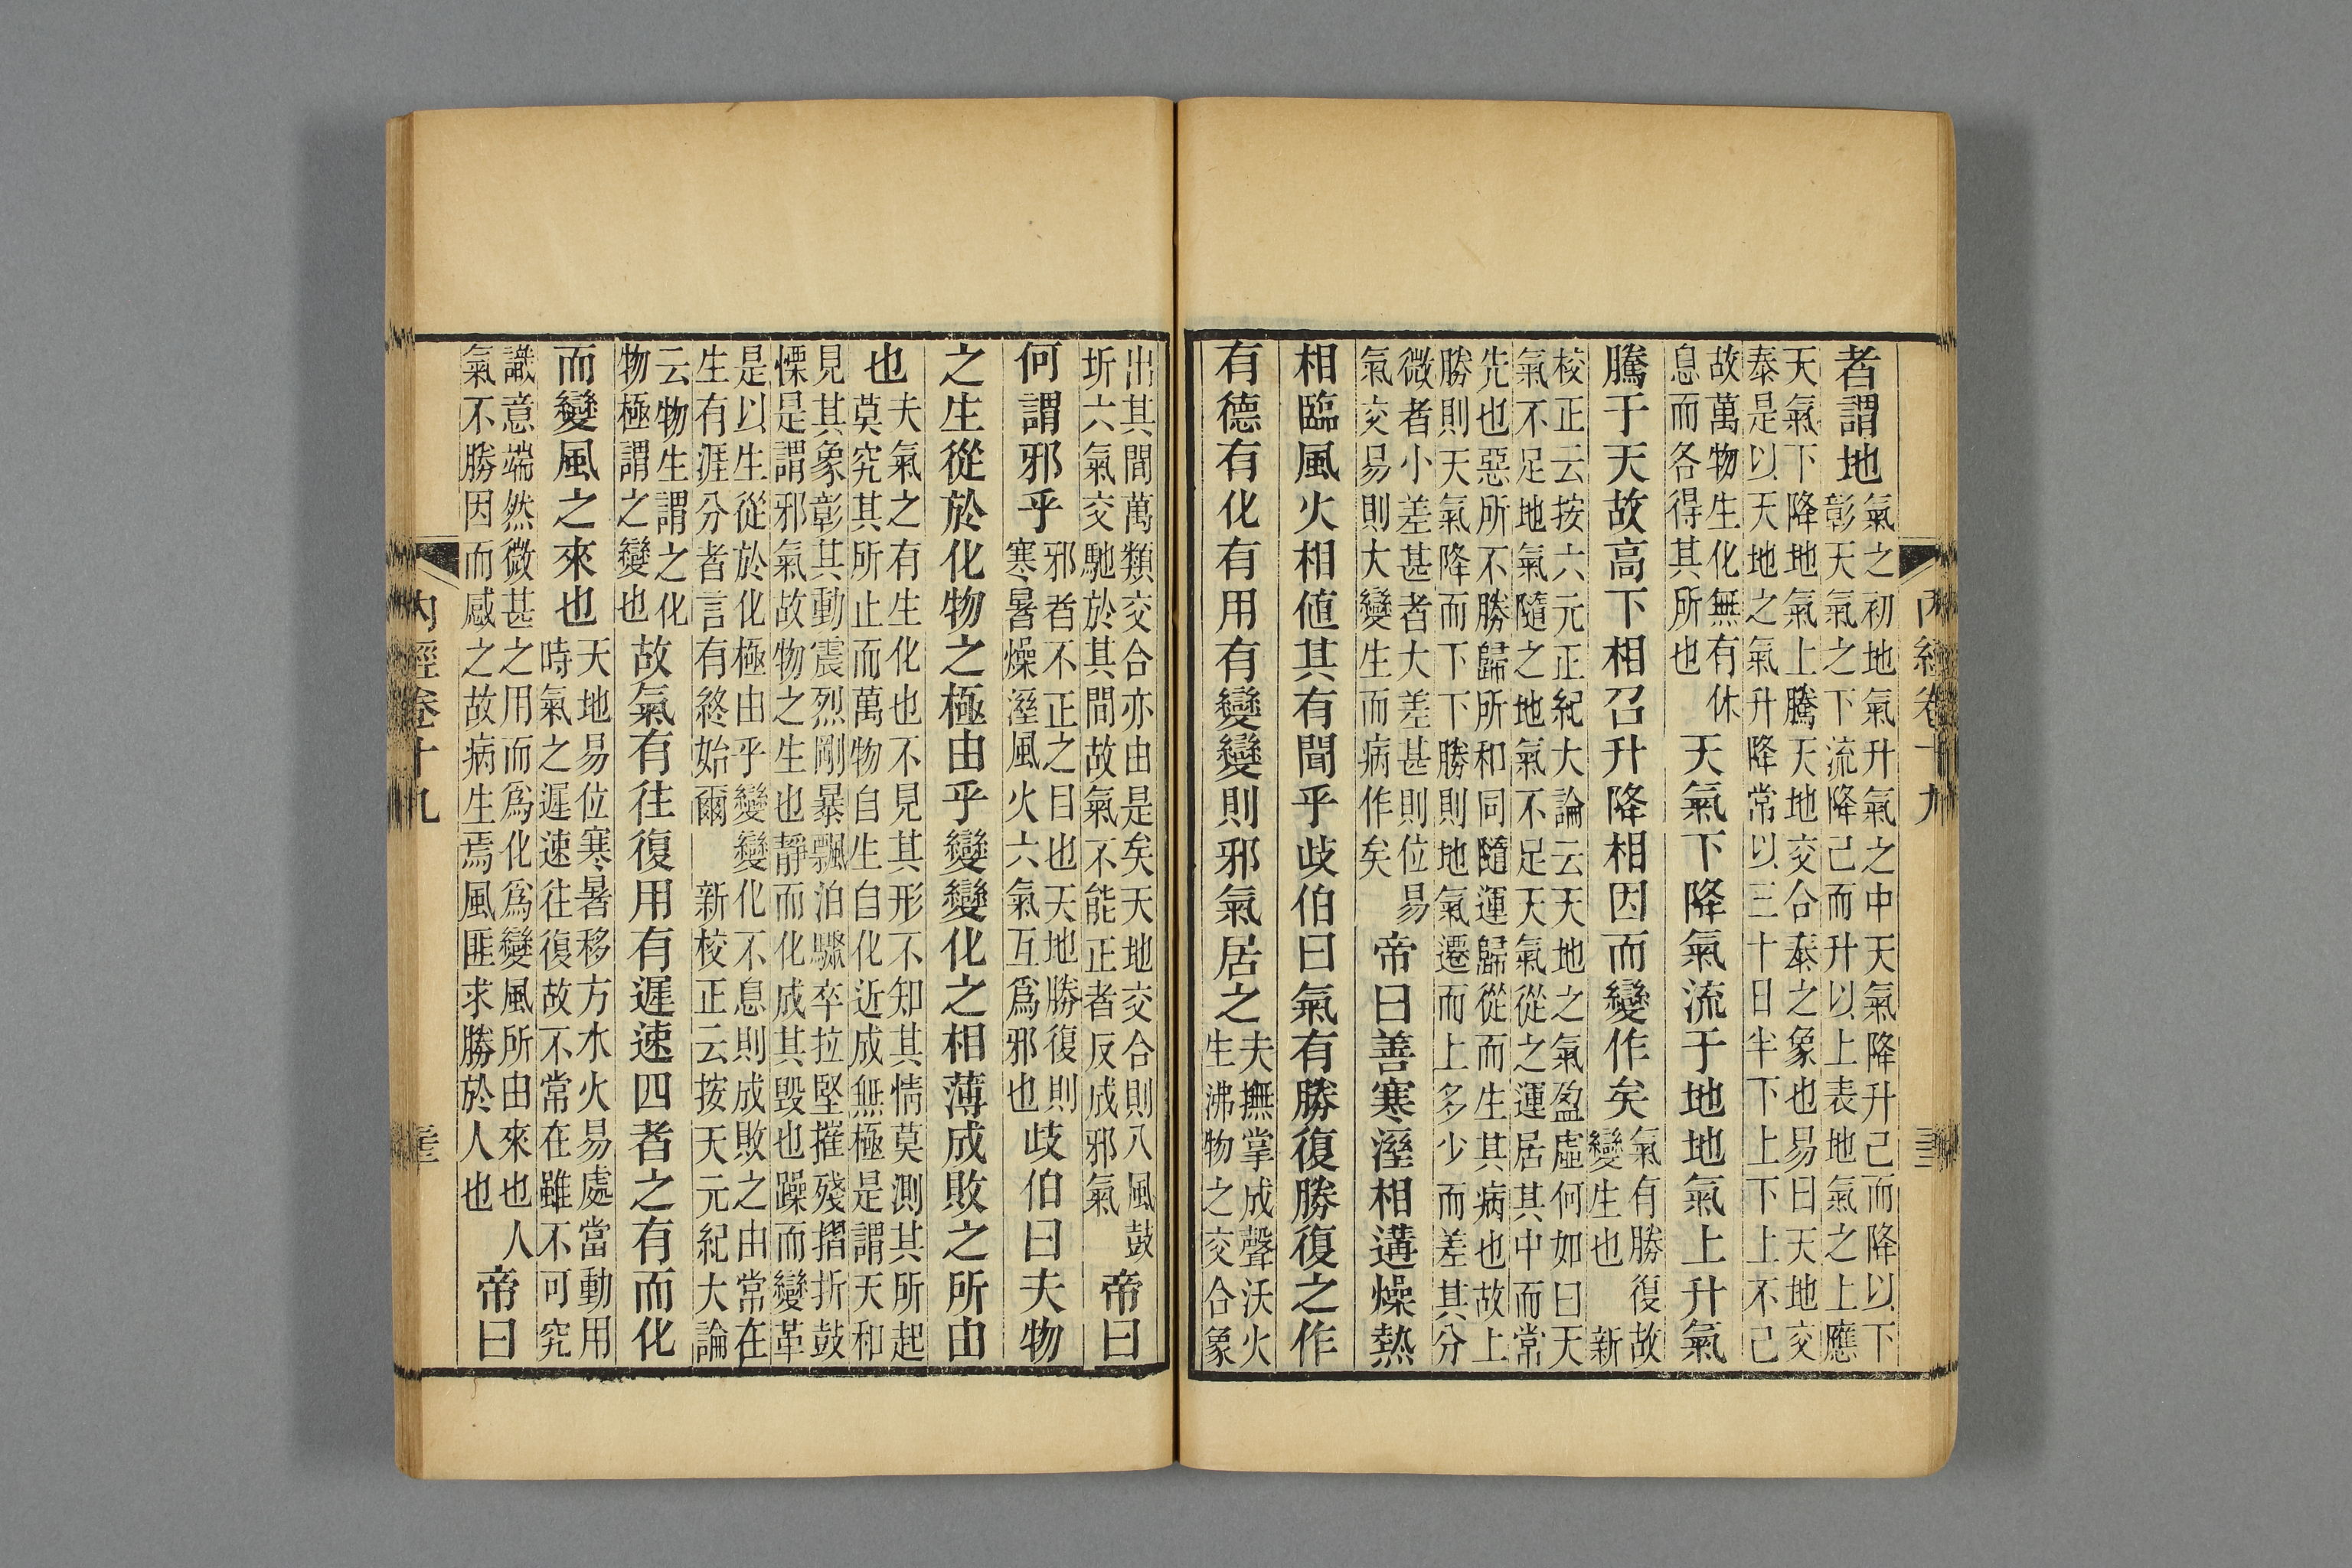 者謂地
氣之初地氣升氣之中天氣降升已而降以下
彰天氣之下流降已而升以上表地氣之上應
天氣下降地氣上騰天地交合泰之象也易曰天地交
泰是以天地之氣升降常以三十日半下上下上不已
故萬物生化無有休
息而各得其所也
天氣下降氣流于地地氣上升氣
騰于天故高下相召升降相因而變作矣
氣有勝復故
變生也 新
校正云按六元正紀大論云天地之氣盈虛何如曰天
氣不足地氣隨之地氣不足天氣從之運居其中而常
先也惡所不勝歸所和同隨運歸從而生其病也故上
勝則天氣降而下下勝則地氣遷而上多少而差其分
微者小差甚者大差甚則位易
氣交易則大變生而病作矣
帝曰善寒溼相遘燥熱
相臨風火相値其有聞乎歧伯曰氣有勝復勝復之作
有德有化有用有變變則邪氣居之
夫撫掌成聲沃火
生沸物之交合象
出其間萬類交合亦由是矣天地交合則八風鼓
坼六氣交馳於其間故氣不能正者反成邪氣
帝曰
何謂邪乎
邪者不正之目也天地勝復則
寒暑燥溼風火六氣互爲邪也
歧伯曰夫物
之生從於化物之極由乎變變化之相薄成敗之所由
也
夫氣之有生化也不見其形不知其情莫測其所起
莫究其所止而萬物自生自化近成無極是謂天和
見其象彰其動震烈剛暴飄泊驟卒拉堅摧殘摺折鼓
慄是謂邪氣故物之生也靜而化成其毀也躁而變革
是以生從於化極由乎變變化不息則成敗之由常在
生有涯分者言有終始爾 新校正云按天元紀大論
云物生謂之化
物極謂之變也
故氣有往復用有遲速四者之有而化
而變風之來也
天地易位寒暑移方水火易處當動用
時氣之遲速往復故不常在雖不可究
識意端然微甚之用而爲化爲變風所由來也人
氣不勝因而感之故病生焉風匪求勝於人也
帝曰
内經卷十九